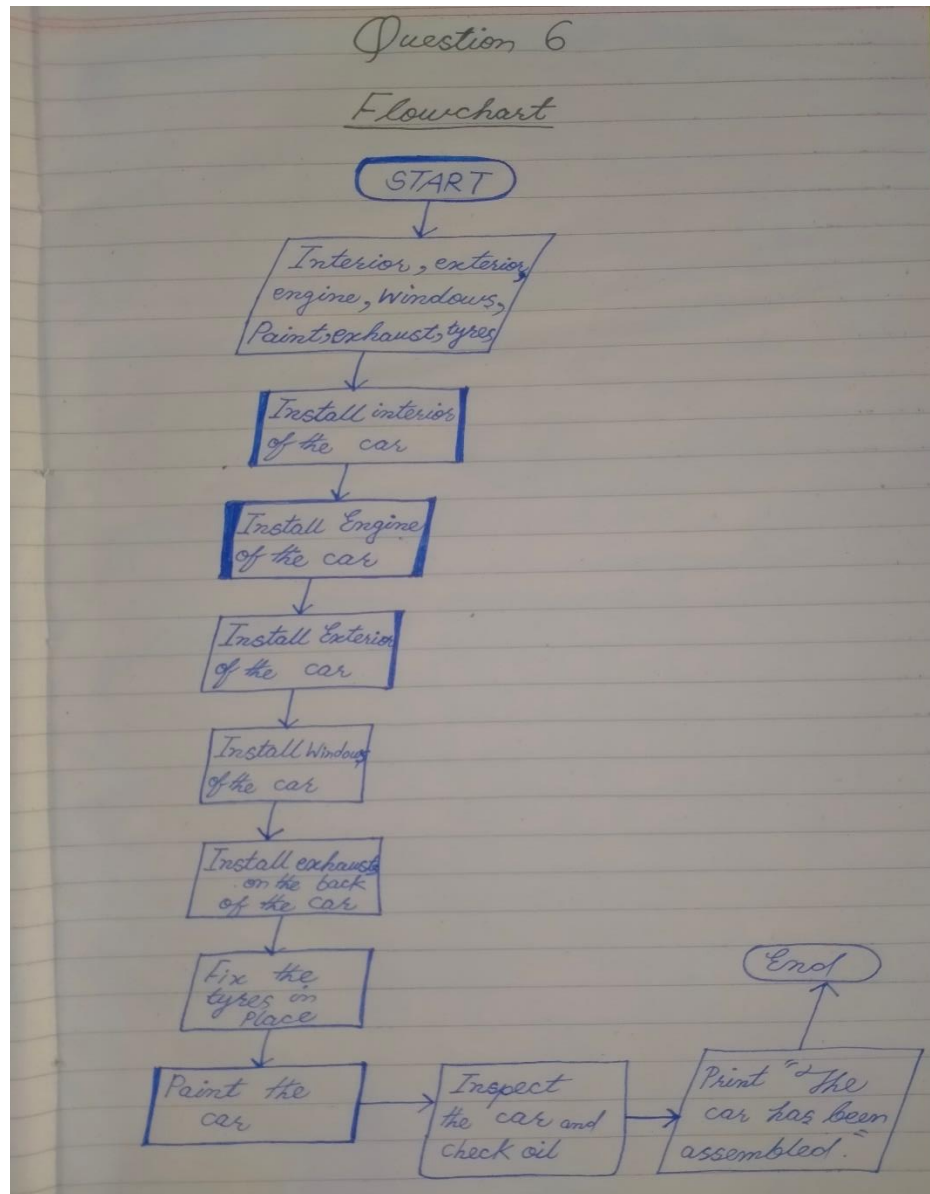 Question 6
Flowchart
START
Interior, exterior,
engine, Windows,
Paint, exhaust, tyres
Install interior
of the car
Install Engine
of the car
Install Exterior
of the car
Install Windows
of the car
Install exhausts
on the back
of the car
Fix the
tyres in
Place
Paint the
car
Inspect
the car and
check oil
Print "The
car has been
assembled."
End